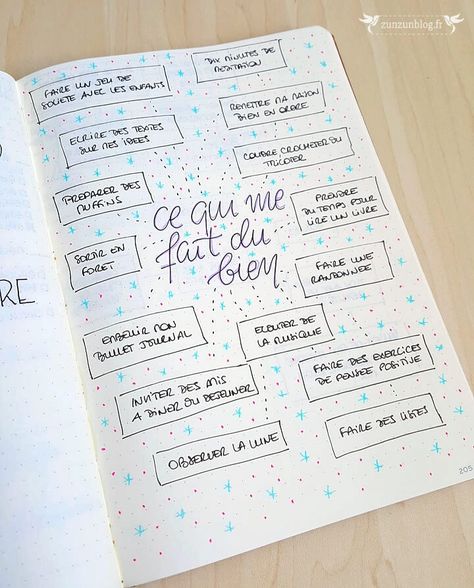 zunzunblog.fr
FAIRE UN JEU DE
SOCIETE AVEC LES ENFANTS
DIX MINUTES DE
MEDITATION
ECRIRE DES TEXTES
SUR MES IDEES
REMETTRE MA MAISON
BIEN EN ORDRE
COUDRE CROCHETER OU
TRICOTER
PREPARER DES
MUFFINS
ce qui me
fait du
bien
PRENDRE
DU TEMPS POUR
LIRE UN LIVRE
SORTIR EN
FORET
FAIRE UNE
RANDONNEE
RE
EMBELLIR MON
BULLET JOURNAL
ECOUTER DE
LA MUSIQUE
INVITER DES AMIS
A DINER OU DEJEUNER
FAIRE DES EXERCICES
DE PENSEE POSITIVE
OBSERVER LA LUNE
FAIRE DES LISTES
205